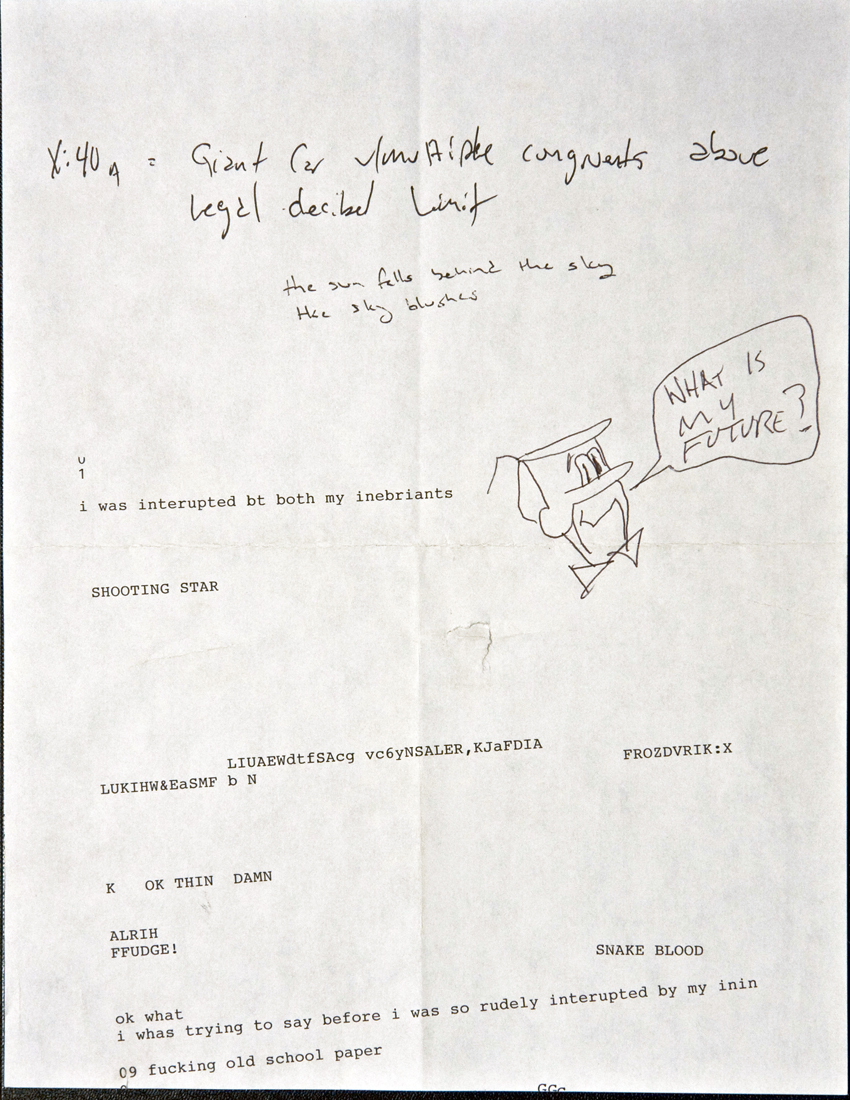 X:40A = Giant Car w/multiple congruents above
Legal decibel Limit
the sun falls behind the sky
the sky blushes
WHAT IS
MY
FUTURE?
u
1
i was interupted bt both my inebriants
SHOOTING STAR
LIUAEWdtfSAcg vc6yNSALER,KJaFDIA
FROZDVRIK:X
LUKIHW&EaSMF b N
K OK THIN DAMN
ALRIH
FFUDGE!
SNAKE BLOOD
ok what
i whas trying to say before i was so rudely interupted by my inin
09 fucking old school paper
GGc